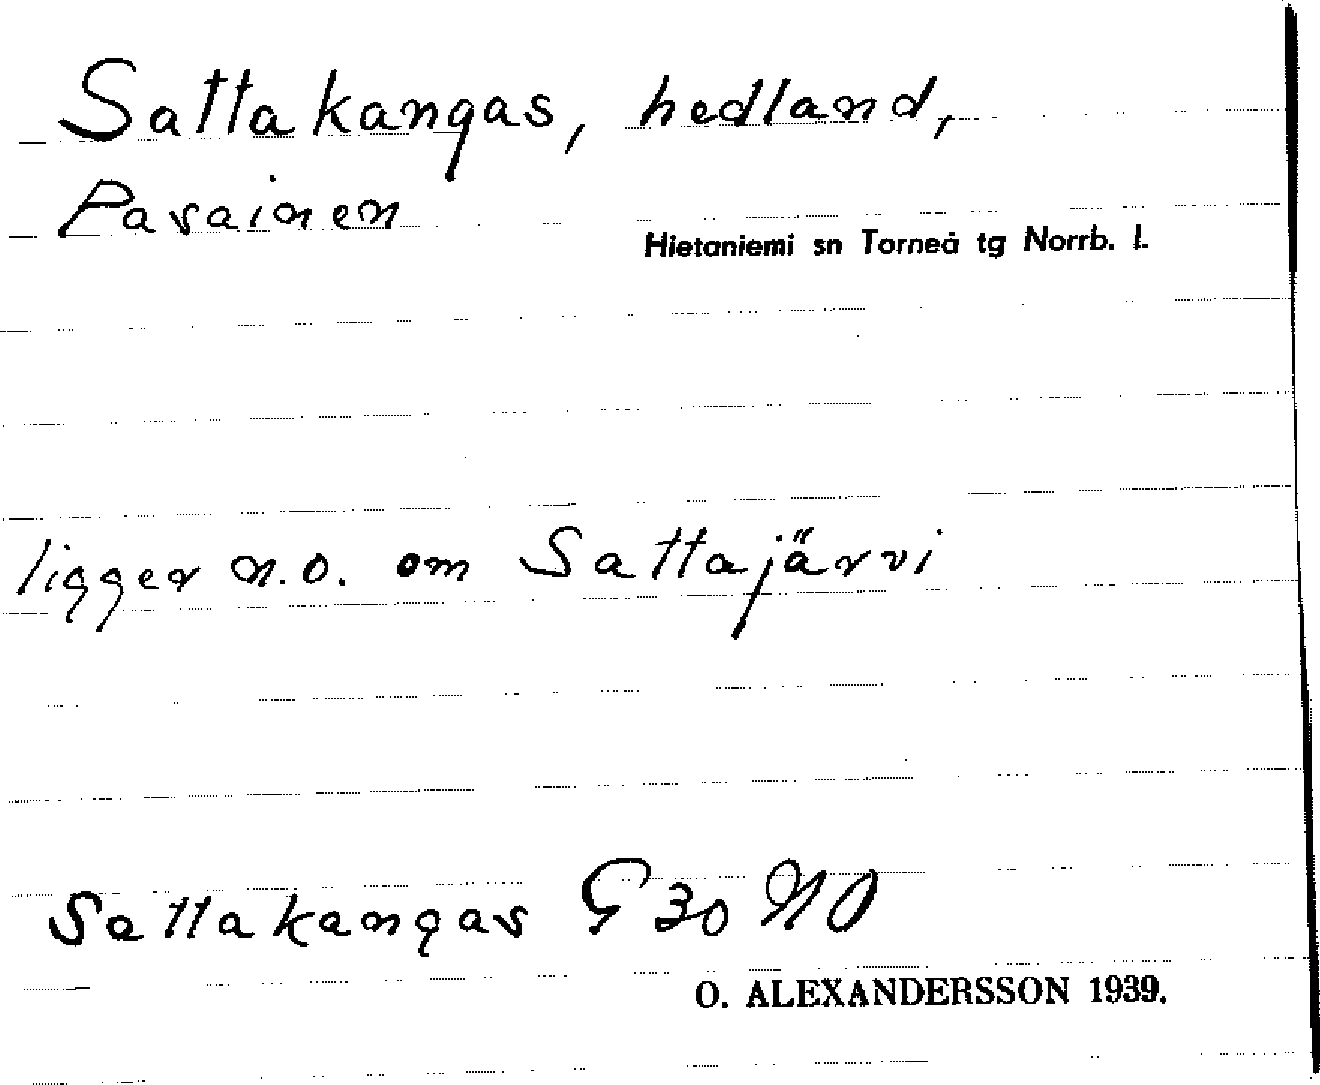 Sattakangas, hedland,
Pasainen
Hietaniemi sn Torneå tg Norrb. l.
ligger n.o. om Sattajärvi
Sattakangas G 30 NO
O. ALEXANDERSSON 1939.